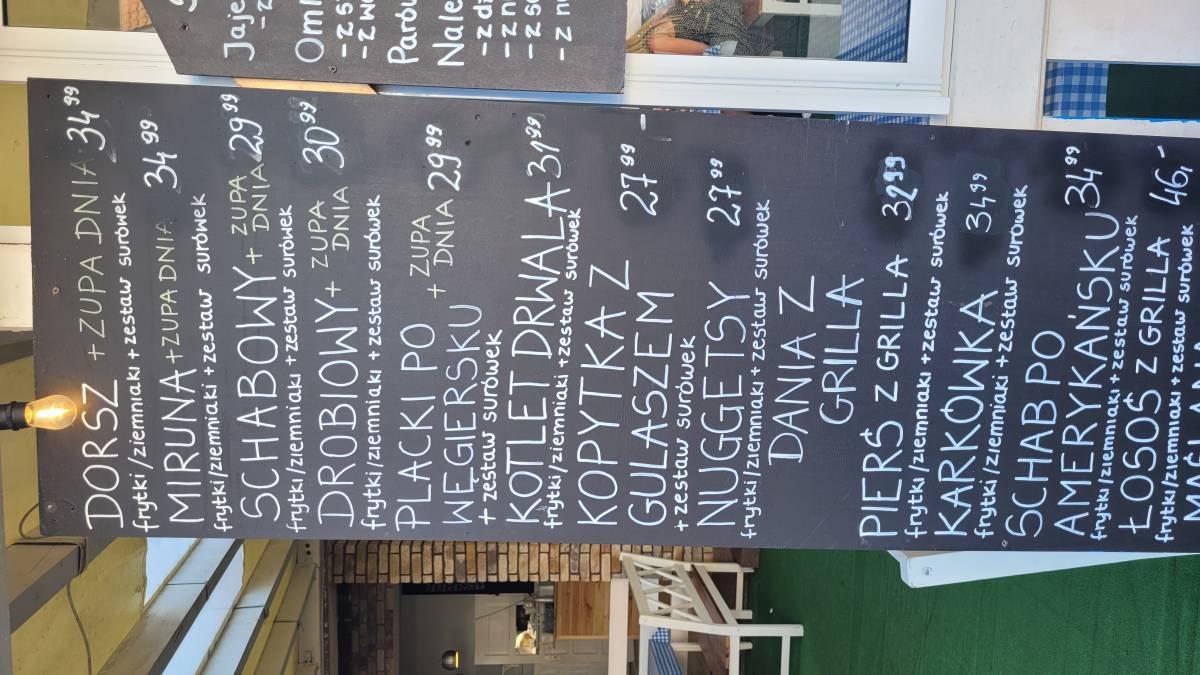 Jaje
Oml
- z s
- z wa
Parów
Nale
- z d
- z n
- z se
- z n
DORSZ + ZUPA DNIA 34 99
frytki/ziemniaki + zestaw surówek
MIRUNA + ZUPA DNIA 34 99
frytki/ziemniaki + zestaw surówek
SCHABOWY + ZUPA DNIA 29 99
frytki/ziemniaki + zestaw surówek
DROBIOWY + ZUPA DNIA 30 99
frytki/ziemniaki + zestaw surówek
PLACKI PO
WĘGIERSKU + ZUPA DNIA 29 99
+ zestaw surówek
KOTLET DRWALA 31 99
frytki/ziemniaki + zestaw surówek
KOPYTKA Z
GULASZEM 27 99
+ zestaw surówek
NUGGETSY 27 99
frytki/ziemniaki + zestaw surówek
DANIA Z
GRILLA
PIERŚ Z GRILLA 32 99
frytki/ziemniaki + zestaw surówek
KARKÓWKA 34 99
frytki/ziemniaki + zestaw surówek
SCHAB PO
AMERYKAŃSKU 34 99
frytki/ziemniaki + zestaw surówek
ŁOSOŚ Z GRILLA 46,-
frytki/ziemniaki + zestaw surówek